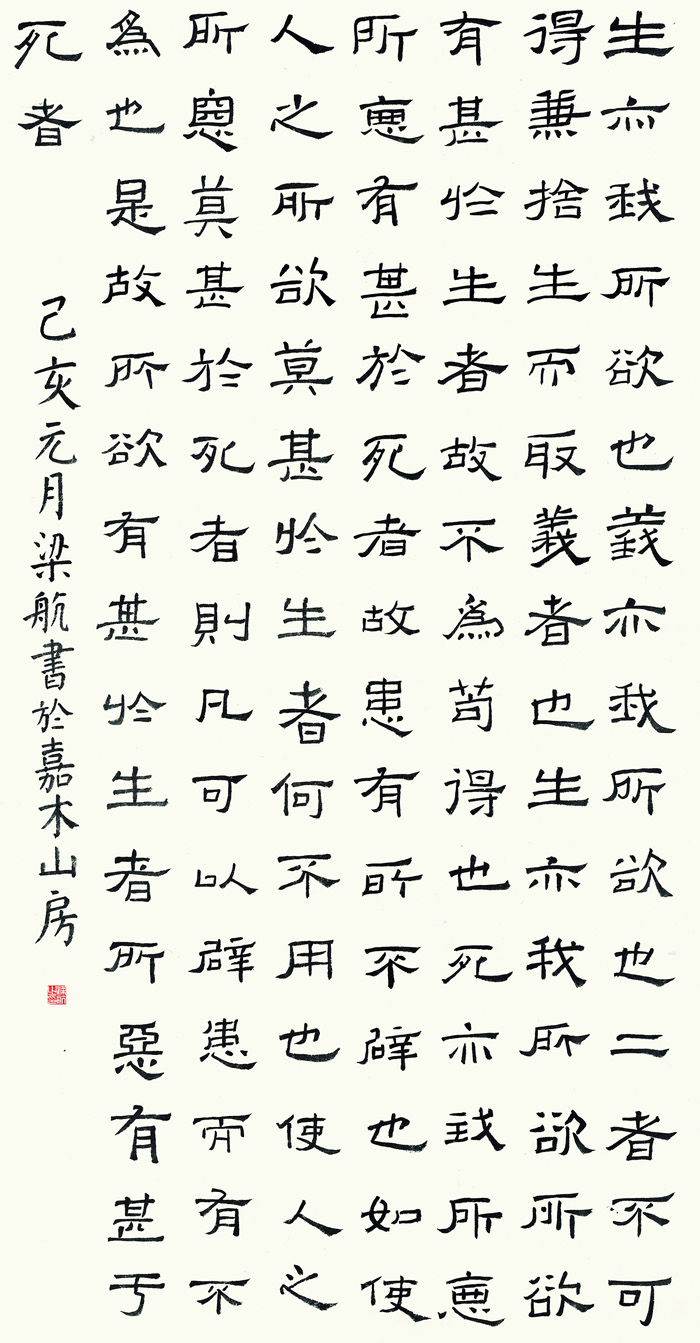 生亦我所欲也義亦我所欲也二者不可
得兼捨生而取義者也生亦我所欲所欲
有甚於生者故不為苟得也死亦我所惡
所惡有甚於死者故患有所不辟也如使
人之所欲莫甚於生者何不用也使人之
所惡莫甚於死者則凡可以辟患而有不
為也是故所欲有甚於生者所惡有甚于
死者
己亥元月梁航書於嘉木山房